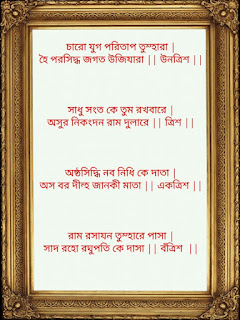 চারো যুগ পরিতাপ তুম্হারা |
হৈ পরসিদ্ধ জগত উজিযারা || উনত্রিশ ||
সাধু সংত কে তুম রখবারে |
অসুর নিকংদন রাম দুলারে || ত্রিশ ||
অষ্ঠসিদ্ধি নব নিধি কে দাতা |
অস বর দীন্হ জানকী মাতা || একত্রিশ ||
রাম রসাযন তুম্হারে পাসা |
সাদ রহো রঘুপতি কে দাসা || বঁত্রিশ ||